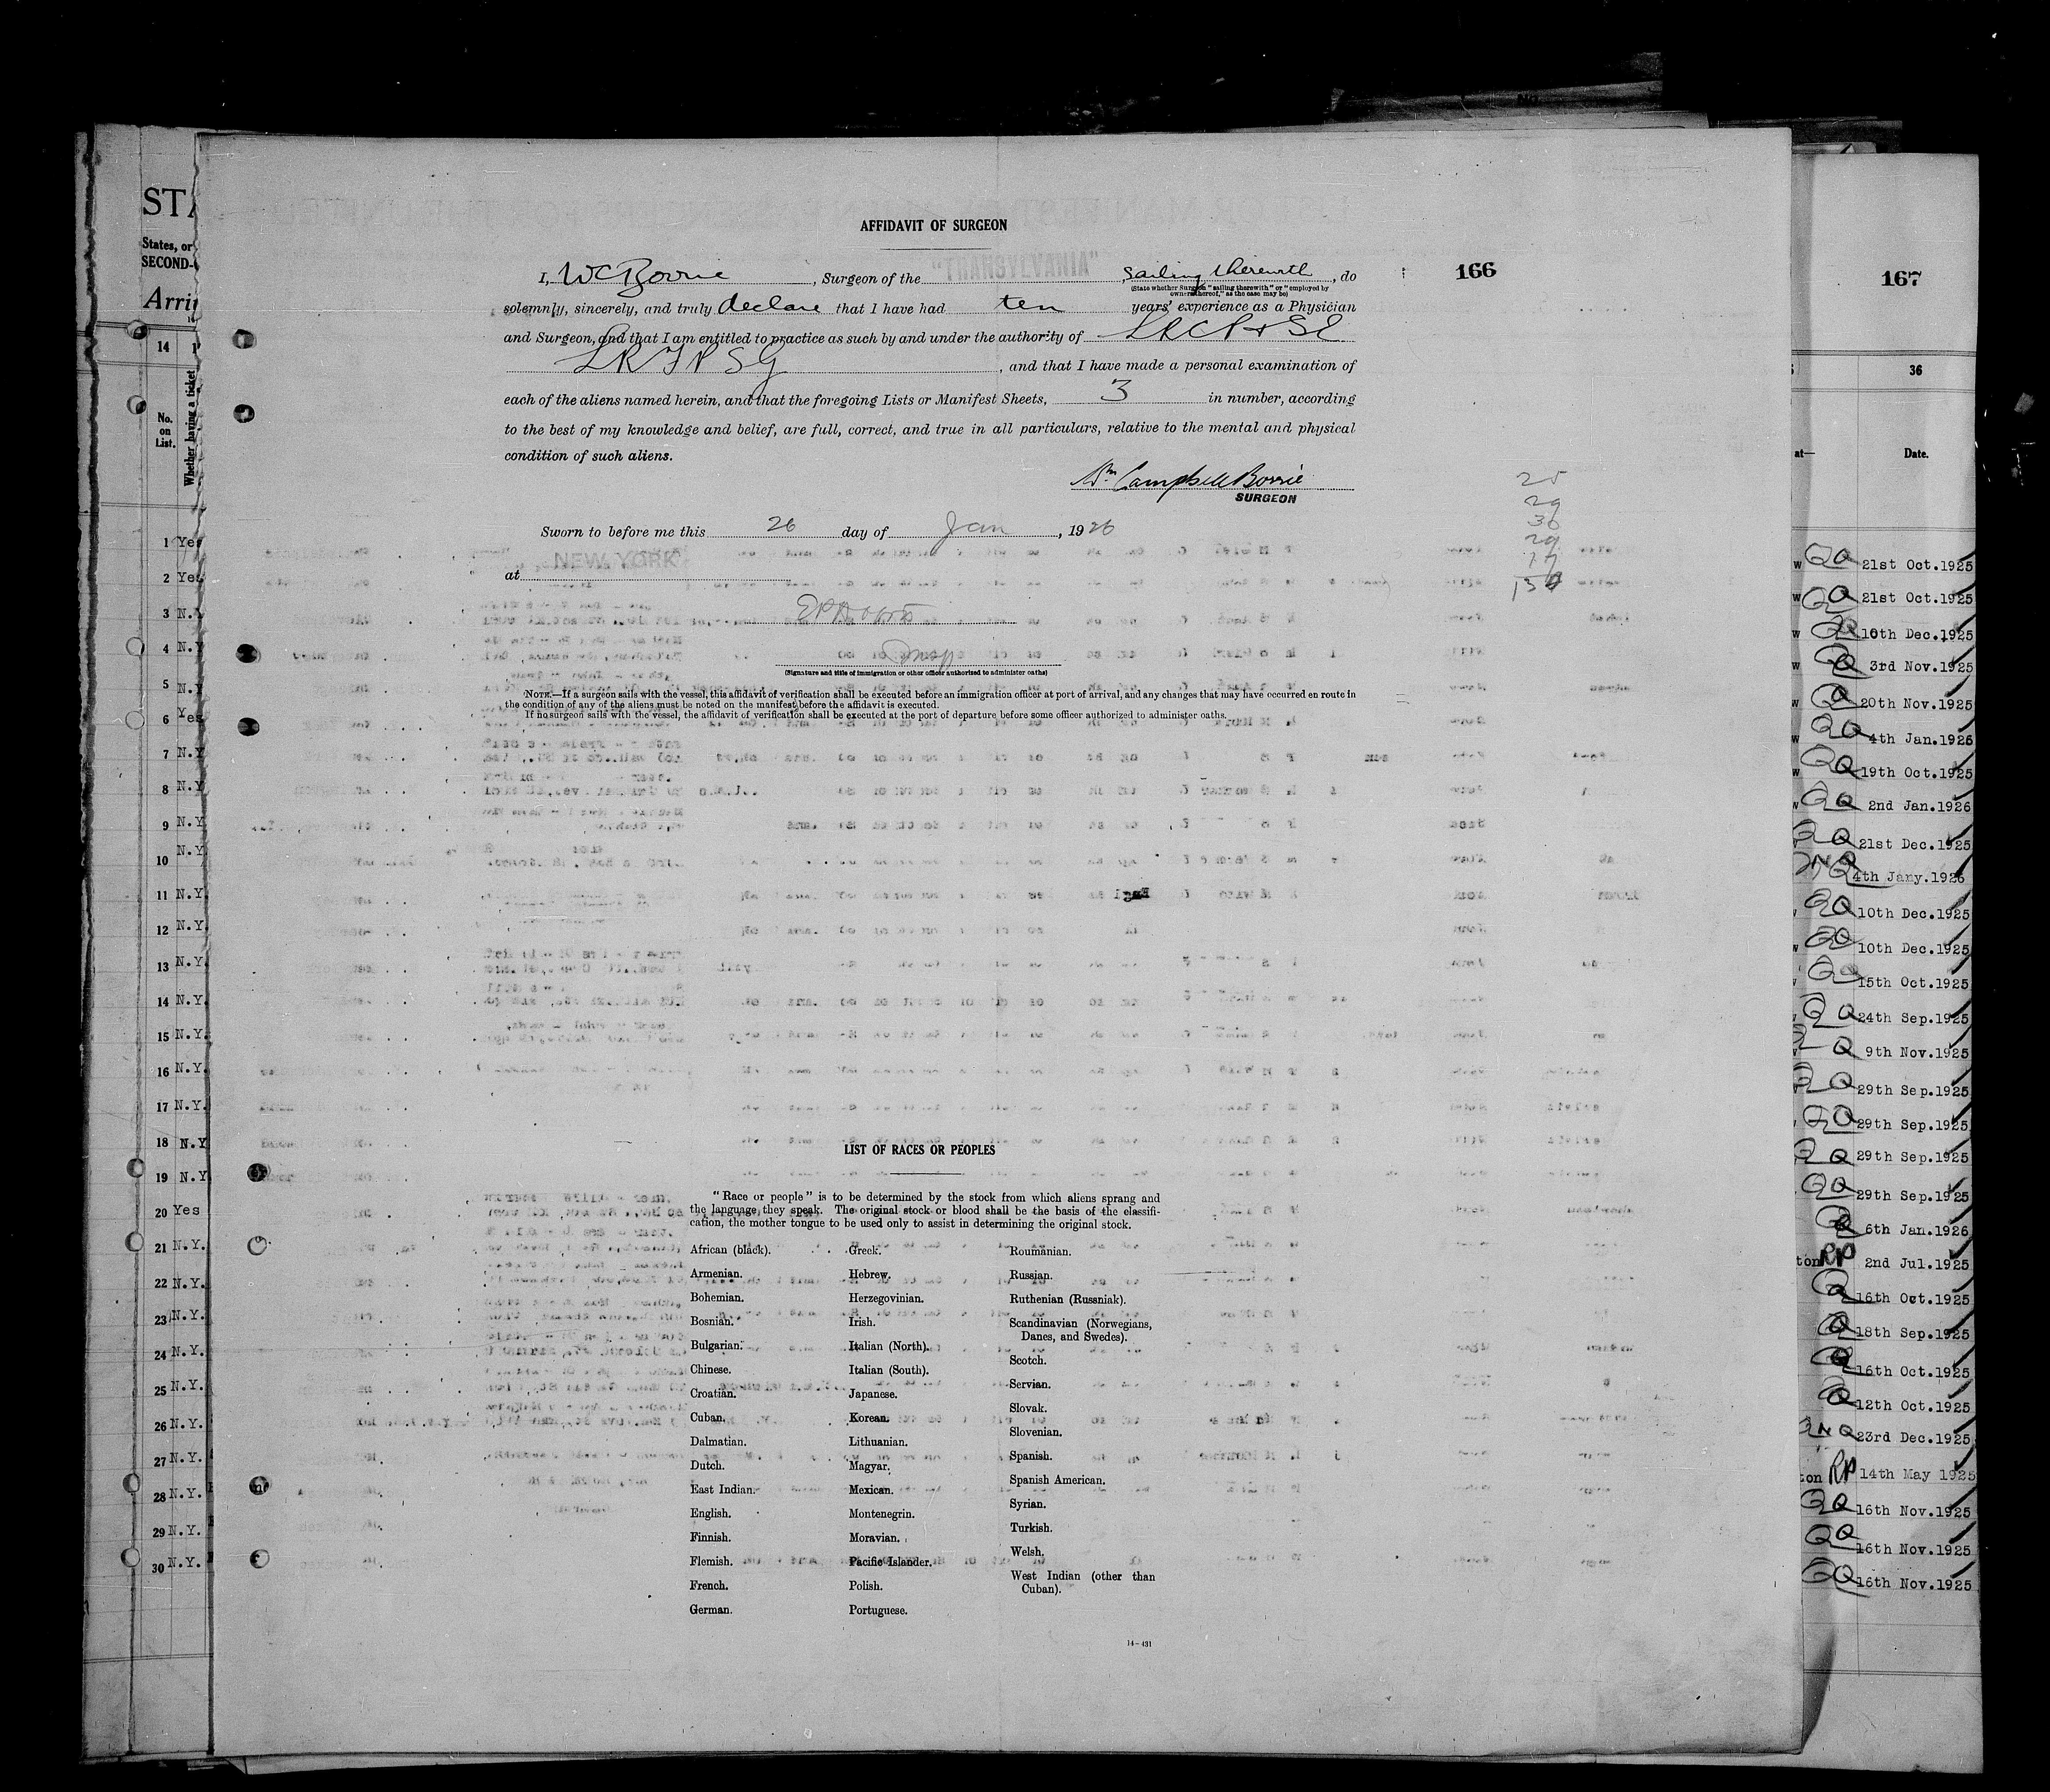 STA
States, or
SECOND-
Arri
14
No.
on
List.
Whether having a ticket
1 Yes
2 Yes
3 N.Y
4 N.Y
5 N.Y
6 Yes
7 N.Y
8 N.Y
9 N.Y
10 N.Y
11 N.Y
12 N.Y.
13 N.Y.
14 N.Y.
15 N.Y.
16 N.Y.
17 N.Y.
18 N.Y
19 N.Y
20 Yes
21 N.Y.
22 N.Y.
23 N.Y.
24 N.Y.
25 N.Y.
26 N.Y.
27 N.Y.
28 N.Y.
29 N.Y.
30 N.Y.
AFFIDAVIT OF SURGEON
166
I, W C Borrie, Surgeon of the "TRANSYLVANIA", sailing therewith, do
(State whether Surgeon "sailing therewith" or "employed by
owners thereof," as the case may be)
solemnly, sincerely, and truly declare that I have had ten years' experience as a Physician
and Surgeon, and that I am entitled to practice as such by and under the authority of LRCP & SE
LRFPSG, and that I have made a personal examination of
each of the aliens named herein, and that the foregoing Lists or Manifest Sheets, 3 in number, according
to the best of my knowledge and belief, are full, correct, and true in all particulars, relative to the mental and physical
condition of such aliens.
Wm Campbell Borrie
SURGEON
25
29
30
29
17
130
Sworn to before me this 26 day of Jan, 1926
at NEW YORK
Insp
(Signature and title of immigration or other officer authorized to administer oaths)
NOTE.—If a surgeon sails with the vessel, this affidavit of verification shall be executed before an immigration officer at port of arrival, and any changes that may have occurred en route in
the condition of any of the aliens must be noted on the manifest before the affidavit is executed.
If no surgeon sails with the vessel, the affidavit of verification shall be executed at the port of departure before some officer authorized to administer oaths.
LIST OF RACES OR PEOPLES
"Race or people" is to be determined by the stock from which aliens sprang and
the language they speak. The original stock or blood shall be the basis of the classifi-
cation, the mother tongue to be used only to assist in determining the original stock.
African (black).
Armenian.
Bohemian.
Bosnian.
Bulgarian.
Chinese.
Croatian.
Cuban.
Dalmatian.
Dutch.
East Indian.
English.
Finnish.
Flemish.
French.
German.
Greek.
Hebrew.
Herzegovinian.
Irish.
Italian (North).
Italian (South).
Japanese.
Korean.
Lithuanian.
Magyar.
Mexican.
Montenegrin.
Moravian.
Pacific Islander.
Polish.
Portuguese.
Roumanian.
Russian.
Ruthenian (Russniak).
Scandinavian (Norwegians,
Danes, and Swedes).
Scotch.
Servian.
Slovak.
Slovenian.
Spanish.
Spanish American.
Syrian.
Turkish.
Welsh.
West Indian (other than
Cuban).
14-431
167
36
at—
Date.
21st Oct.1925
21st Oct.1925
10th Dec.1925
3rd Nov.1925
20th Nov.1925
4th Jan.1926
19th Oct.1925
2nd Jan.1926
21st Dec.1925
4th Jany.1926
10th Dec.1925
10th Dec.1925
15th Oct.1925
24th Sep.1925
9th Nov.1925
29th Sep.1925
29th Sep.1925
29th Sep.1925
29th Sep.1925
6th Jan.1926
ton RP 2nd Jul.1925
16th Oct.1925
18th Sep.1925
16th Oct.1925
12th Oct.1925
23rd Dec.1925
ton RP 14th May 1925
16th Nov.1925
16th Nov.1925
16th Nov.1925